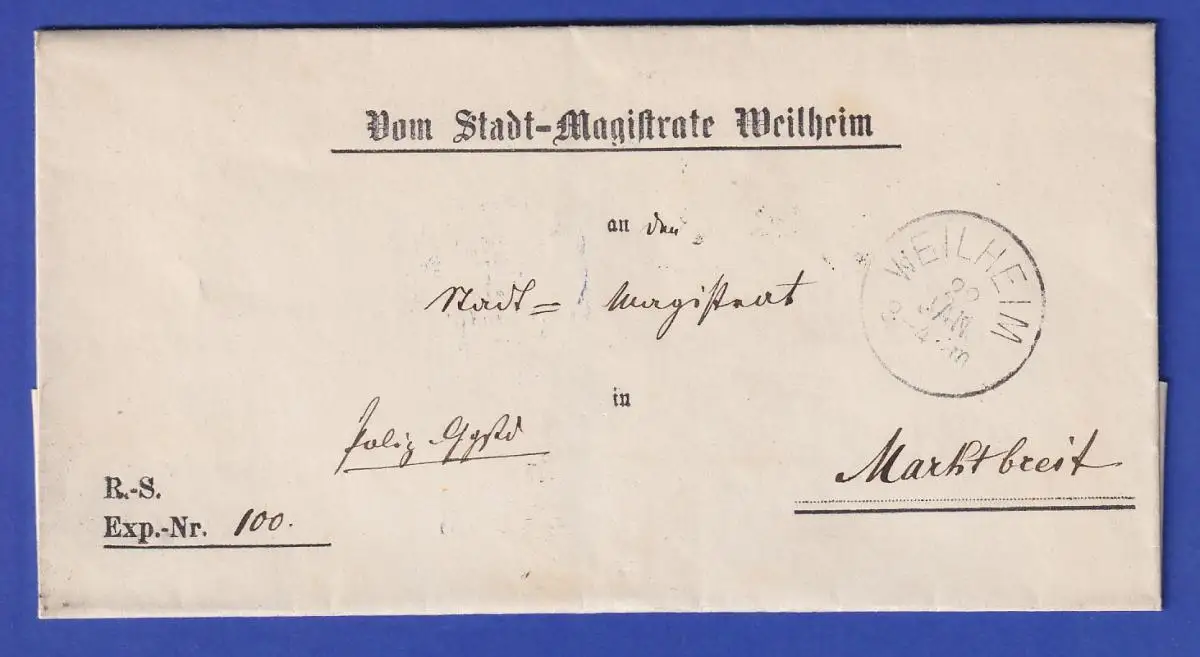 Vom Stadt-Magistrate Weilheim
an den
Stadt= Magistrat
WEILHEIM
JAN
in
Poliz. Ggstd
Marktbreit
R.-S.
Exp.-Nr. 100.